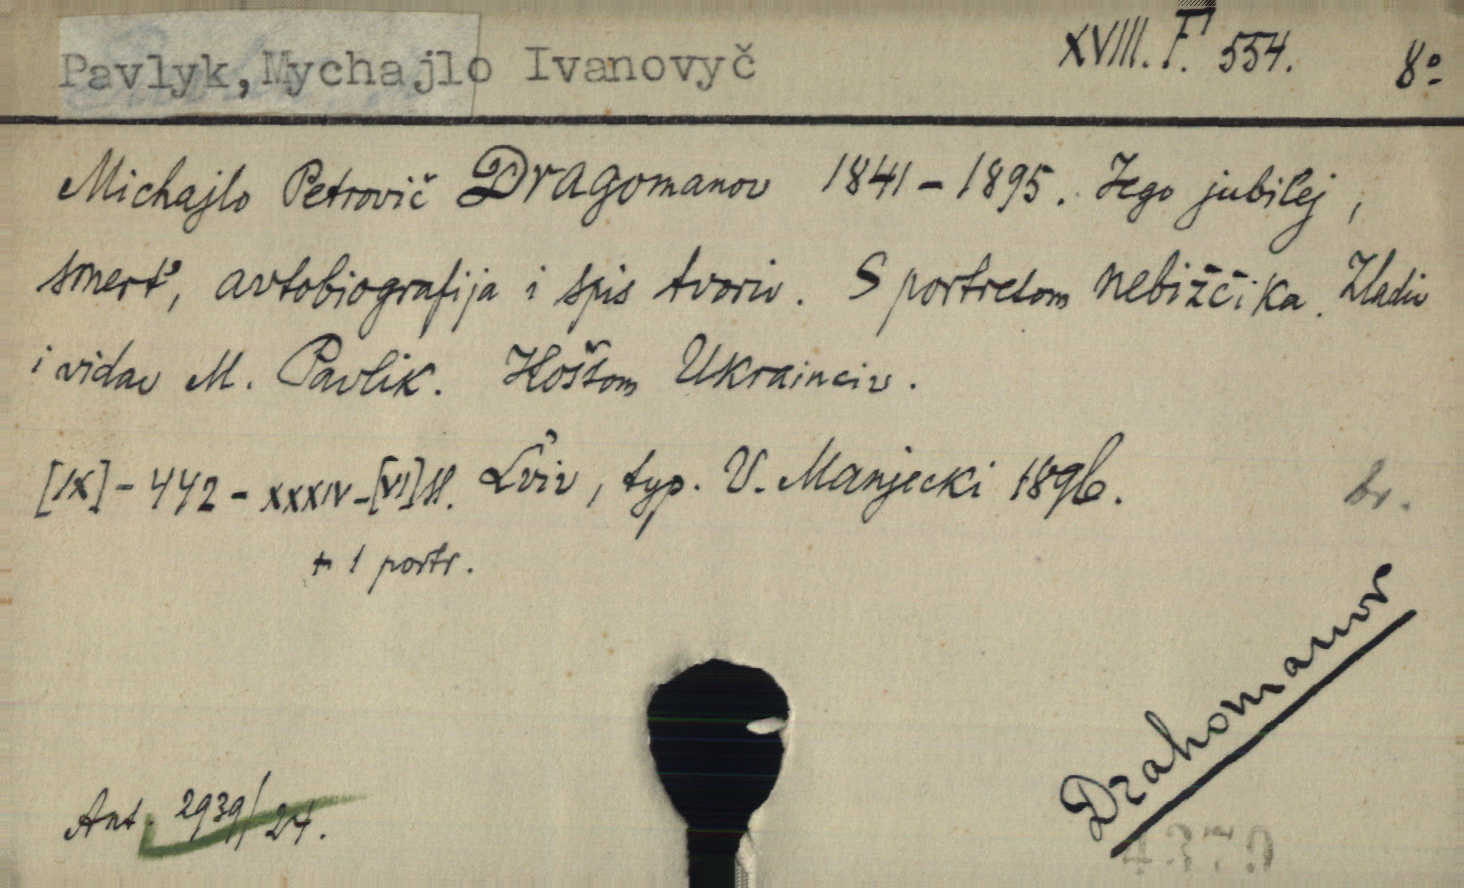 Pavlyk, Mychajlo Ivanovyč XVIII. F. 554. 8º
Michajlo Petrovič Dragomanov 1841-1895. Jego jubilej,
smert', avtobiografija i spis tvoriv. S portretom nebižčika. Zladiv
i vidav M. Pavlik. Koštom Ukrainciv.
[IX]-442-XXXIV-[VI] s. L'viv, typ. V. Manjecki 1896. br.
+ 1 portr.
Drahomanov
Ant. 2939/24.